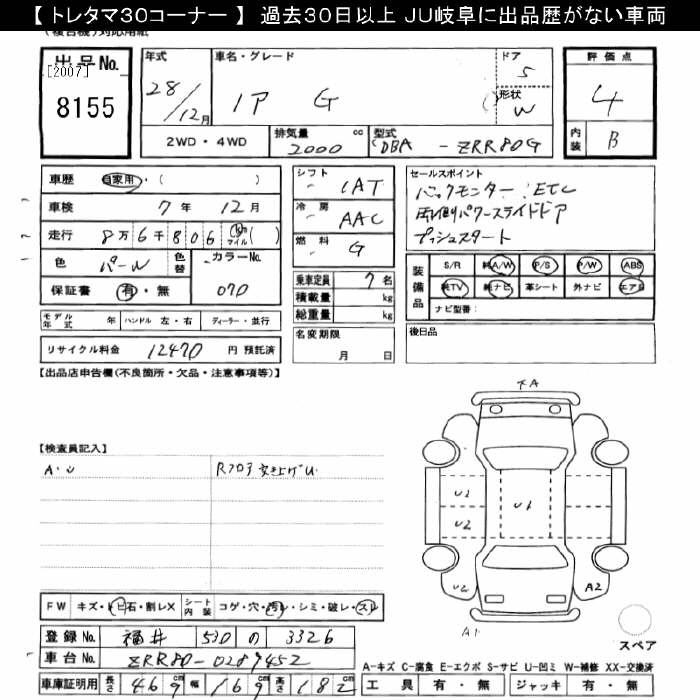 【 トレタマ30コーナー 】 過去30日以上 JU岐阜に出品歴がない車両
出品No.
[2007]
8155
年式
28/12月
車名・グレード
ノア G
ドア
5
形状
W
評価点
4
内装
B
2WD・4WD
排気量 cc
2000
型式
DBA - ZRR80G
車歴 自家用・( )
車検 7年 12月
走行 8万6千806 Km マイル ( )
色 パール 色替 カラーNo.
保証書 有・無 070
モデル年式 年 ハンドル 左・右 ディーラー・並行
リサイクル料金 12470 円 預託済
シフト
IAT
冷房
AAC
燃料
G
乗車定員 7名
積載量 kg
総重量 kg
名変期限
月 日
セールスポイント
バックモニター ETC
両側パワースライドドア
プッシュスタート
装備品
S/R 純A/W P/S P/W ABS
純TV 純ナビ 革シート 外ナビ エアB
ナビ型番:
後日品
【出品店申告欄(不良箇所・欠品・注意事項等)】
【検査員記入】
A・U
Rフロア突上げU
A
U1
U2
U1
U2
A2
A1
スペア
FW キズ・トビ石・割レX シート内装 コゲ・穴・汚レ・シミ・破レ・スレ
登録No. 福井 530 の 3326
車台No. ZRR80-0289452
車庫証明用 長さ 469cm 幅 169cm 高さ 182cm
A-キズ C-腐食 E-エクボ S-サビ U-凹ミ W-補修 XX-交換済
工具 有・無 ジャッキ 有・無